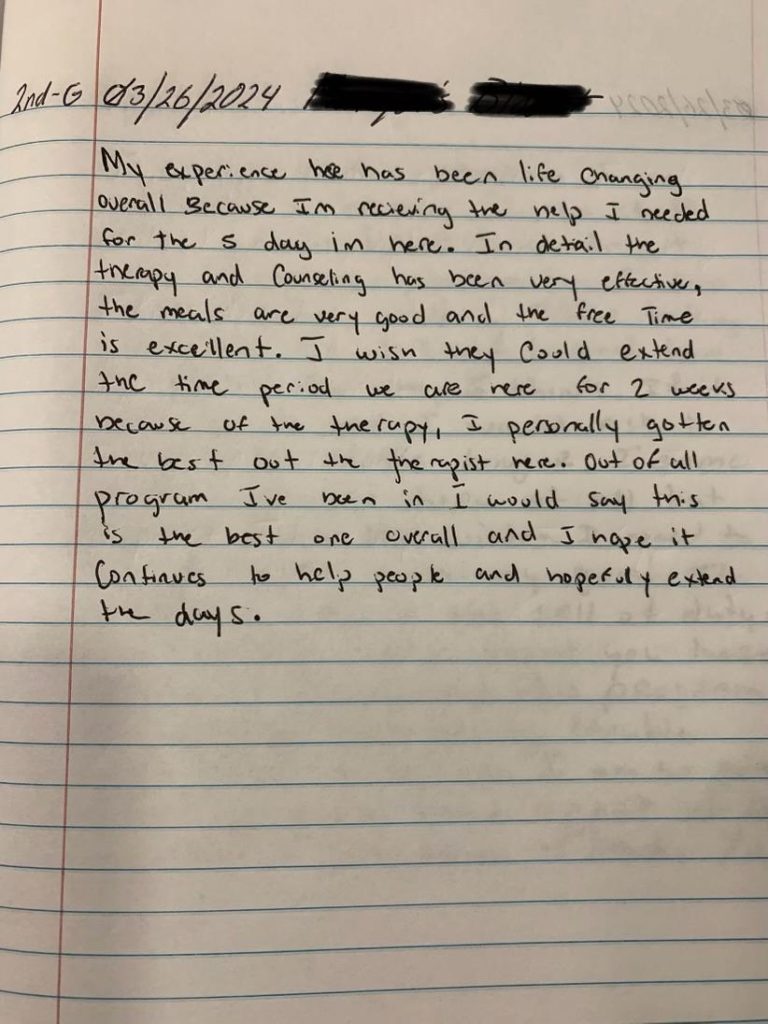 2nd-G 03/26/2024
My experience hee has been life changing
overall Because Im recieving the help I needed
for the 5 day im here. In detail the
therapy and Counseling has been very effective,
the meals are very good and the free Time
is excellent. I wish they Could extend
the time period we are here for 2 weeks
because of the therapy, I personally gotten
the best out the therapist here. Out of all
program I've been in I would say this
is the best one overall and I hope it
Continues to help people and hopefuly extend
the days.